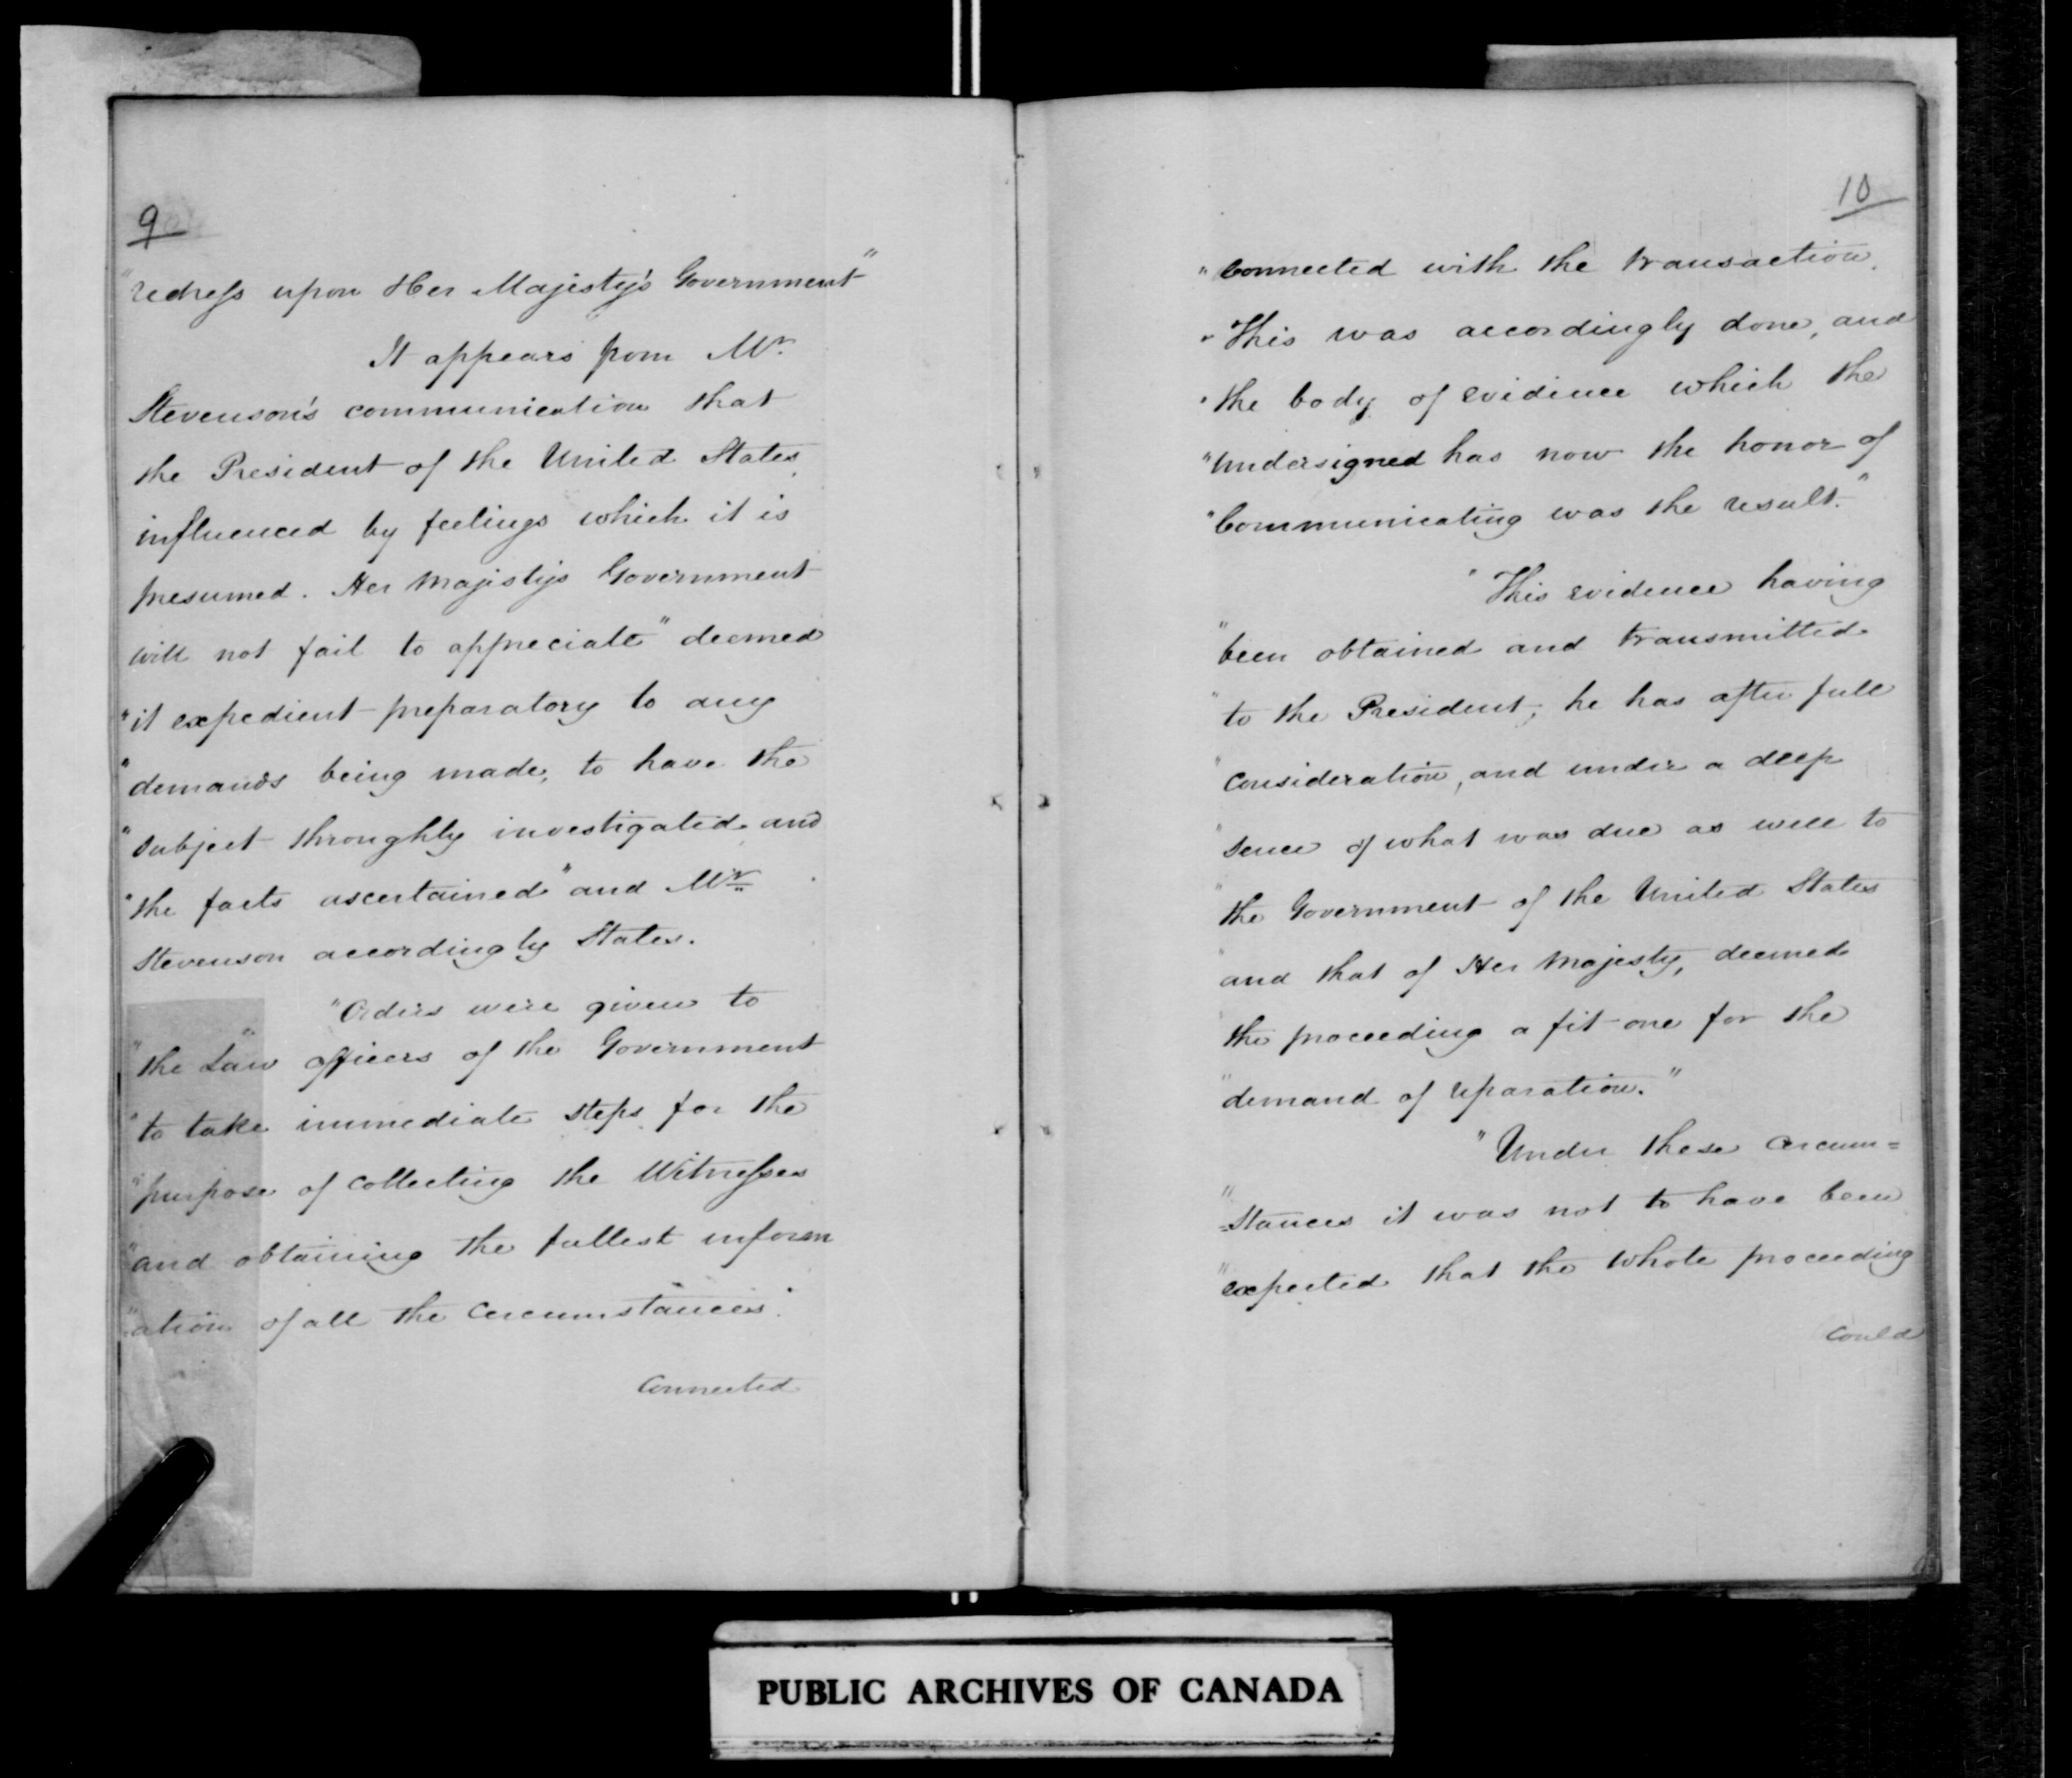 9
"redress upon Her Majesty's Government"
It appears from Mr.
Stevenson's communication that
the President of the United States,
influenced by feelings which it is
presumed. Her Majestys Government
will not fail to appreciate" deemed
"it expedient preparatory to any
"demands being made, to have the
"subject throughly investigated and
"the facts ascertained" and Mr.
Stevenson accordingly States.
"Orders were given to
"the Law officers of the Government
"to take immediate steps for the
"purpose of collecting the Witnesses
"and obtaining the fullest inform
"ation of all the circumstances"
Connected
10
"Connected with the transaction.
"This was accordingly done, and
"the body of evidence which the
"Undersigned has now the honor of
"Communicating was the result."
"This evidence having
"been obtained and transmitted
"to the President, he has after full
"consideration, and under a deep
"sence of what was due as well to
"the Government of the United States
"and that of Her Majesty, deemed
"the proceeding a fit one for the
"demand of reparation."
"Under these circum=
"=stances it was not to have been
"expected that the whole proceeding
could
PUBLIC ARCHIVES OF CANADA